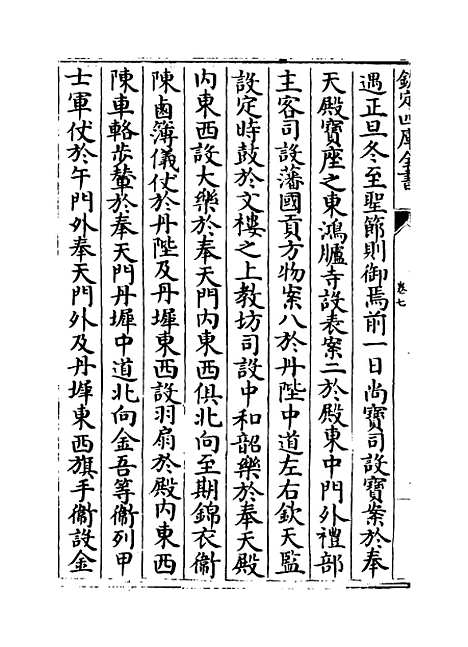 欽定四庫全書
卷七
遇正旦冬至聖節則御焉前一日尚寶司設寶案於奉
天殿寶座之東鴻臚寺設表案二於殿東中門外禮部
主客司設藩國貢方物案八於丹陛中道左右欽天監
設定時鼓於文樓之上教坊司設中和韶樂於奉天殿
内東西設大樂於奉天門内東西俱北向至期錦衣衞
陳鹵簿儀仗於丹陛及丹墀東西設羽扇於殿内東西
陳車輅步輦於奉天門丹墀中道北向金吾等衞列甲
士軍仗於午門外奉天門外及丹墀東西旗手衞設金